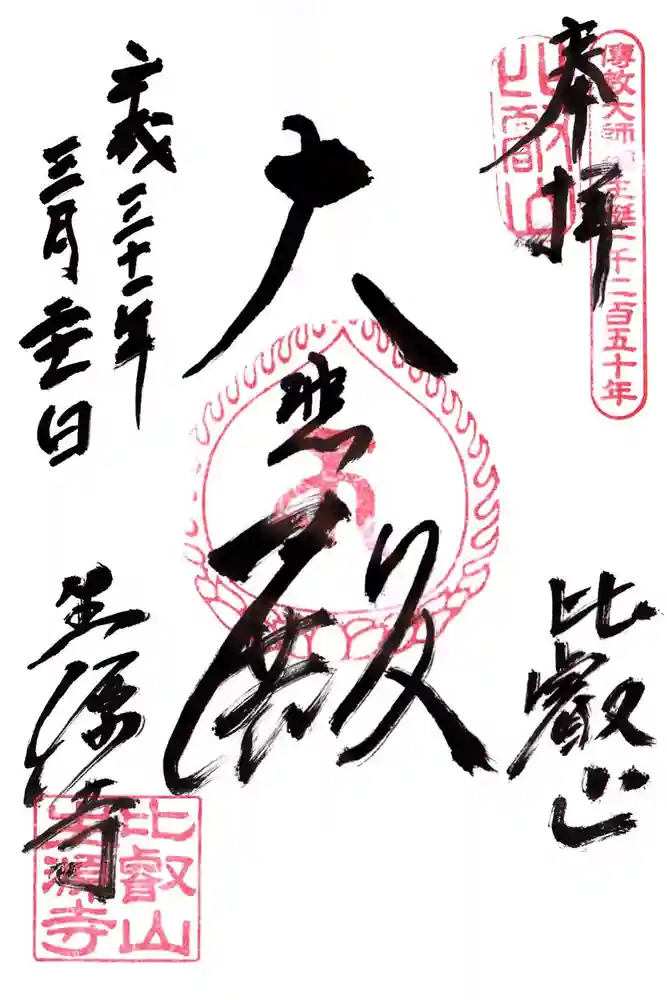 奉拝
比叡山
傳教大師御生誕一千二百五十年
比叡山
大悲殿
平成三十一年
三月 日
生源寺
比叡山
生源寺